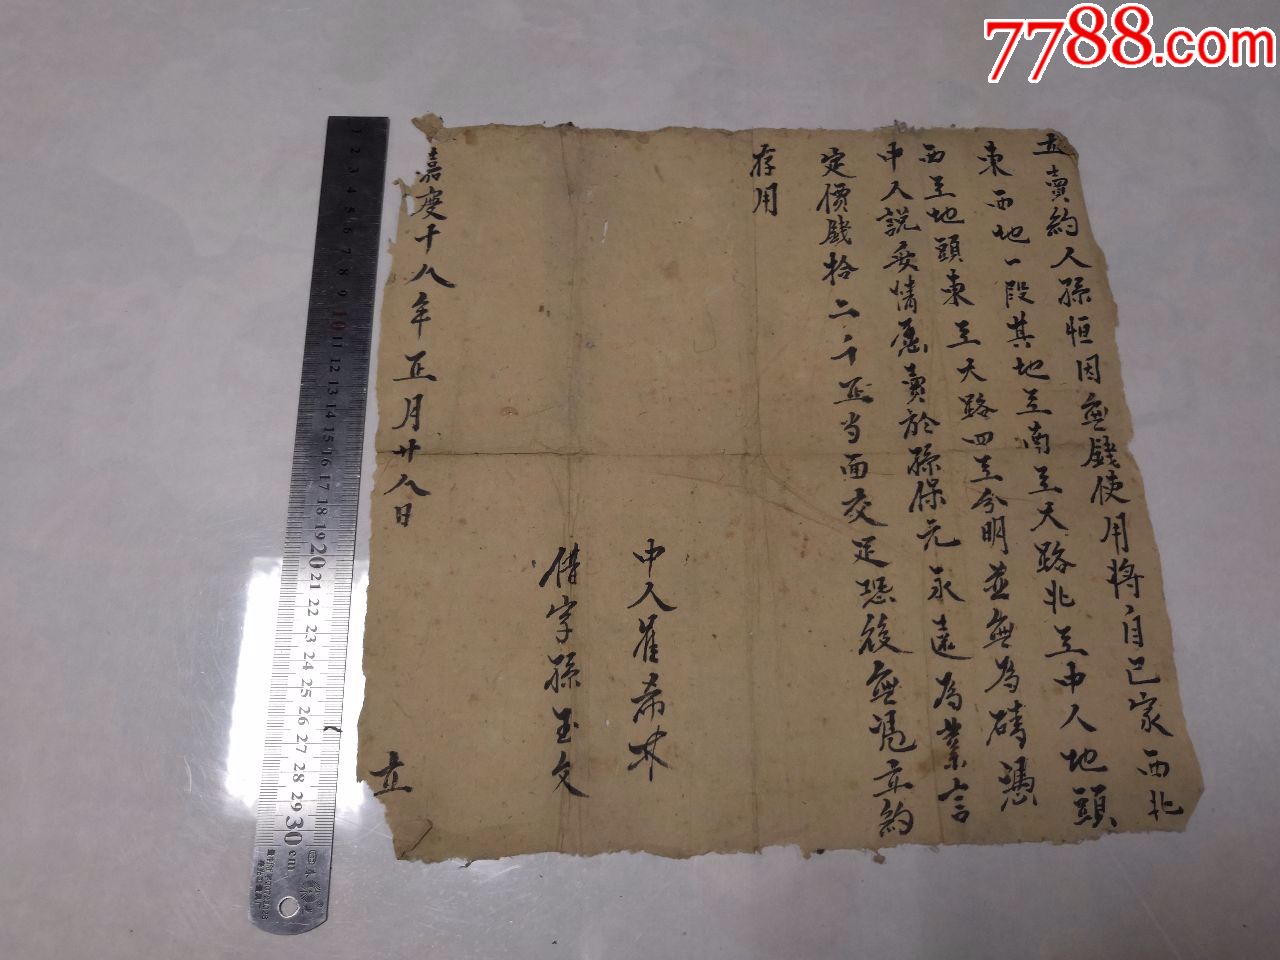 7788.com
立賣約人孫恒因無錢使用將自己家西北
東西地一段其地至南至大路北至中人地頭
西至地頭東至大路四至分明並無為碍憑
中人説妥情愿賣於孫保元永遠為業言
定價錢拾二千正当面交足恐後無憑立約
存用
中人崔希林
借字孫玉文
嘉慶十八年正月廿八日
立
1 2 3 4 5 6 7 8 9 10 11 12 13 14 15 16 17 18 19 20 21 22 23 24 25 26 27 28 29 30 cm